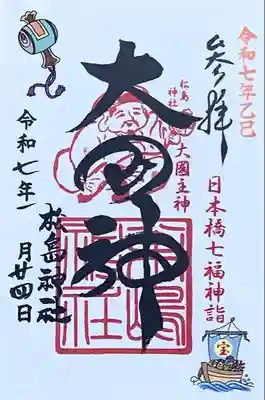 令和七年乙巳
奉拝
日本橋七福神詣
松島神社
大國主神
大国神
松島神社
令和七年一月廿四日
宝